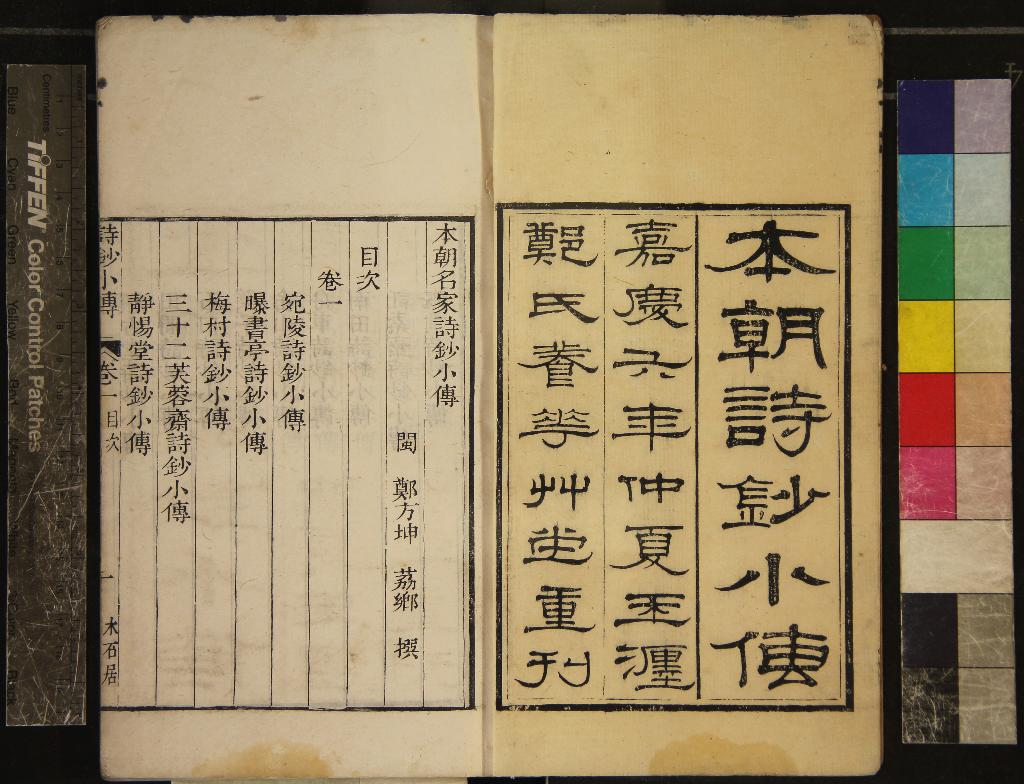 本朝詩鈔小傳
嘉慶六年仲夏玉躔
鄭氏養花艸堂重刊
本朝名家詩鈔小傳
閩 鄭方坤 荔鄉 撰
目次
卷一
宛陵詩鈔小傳
曝書亭詩鈔小傳
梅村詩鈔小傳
三十二芙蓉齋詩鈔小傳
靜惕堂詩鈔小傳
詩鈔小傳 卷一目次 一 木石居
TIFFEN Color Control Patches
Centimetres
Blue Cyan Green Yellow Red